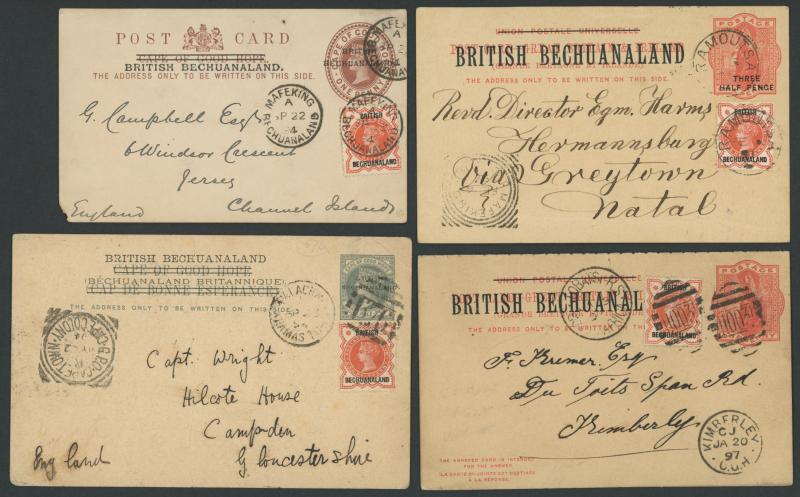 POST CARD
CAPE OF GOOD HOPE
BRITISH BECHUANALAND.
THE ADDRESS ONLY TO BE WRITTEN ON THIS SIDE.
CAPE OF GOOD HOPE
BRITISH
BECHUANALAND
ONE PENNY
MAFEKING
A
SP 22
94
BECHUANALAND
BRITISH
BECHUANALAND
G. Campbell Esqr
6 Windsor Crescent
Jersey
England Channel Islands
UNION POSTALE UNIVERSELLE
BRITISH BECHUANALAND
THE ADDRESS ONLY TO BE WRITTEN ON THIS SIDE.
POSTAGE
THREE
HALF PENCE
RAMOUTSA
BRITISH
BECHUANALAND
Revd. Director Egm. Harms
Hermannsburg
Via Greytown
Natal
MAFEKING
BRITISH BECHUANALAND
CAPE OF GOOD HOPE
BÉCHUANALAND BRITANNIQUE
CAP DE BONNE ESPÉRANCE
THE ADDRESS ONLY TO BE WRITTEN ON THIS SIDE.
G.P.O. CAPE TOWN
CAPE COLONY
BRITISH
BECHUANALAND
Capt. Wright
Hilcote House
Campden
England Gloucestershire
UNION POSTALE UNIVERSELLE
BRITISH BECHUANAL
POSTAGE
BRITISH
BECHUANALAND
Kremer Esq
Du Toits Span Rd.
Kimberly
KIMBERLEY
CJ
JA 20
97
C.G.H.
THE ANNEXED CARD IS INTENDED
FOR THE ANSWER
LA CARTE CI-JOINTE EST DESTINÉE
À LA RÉPONSE.